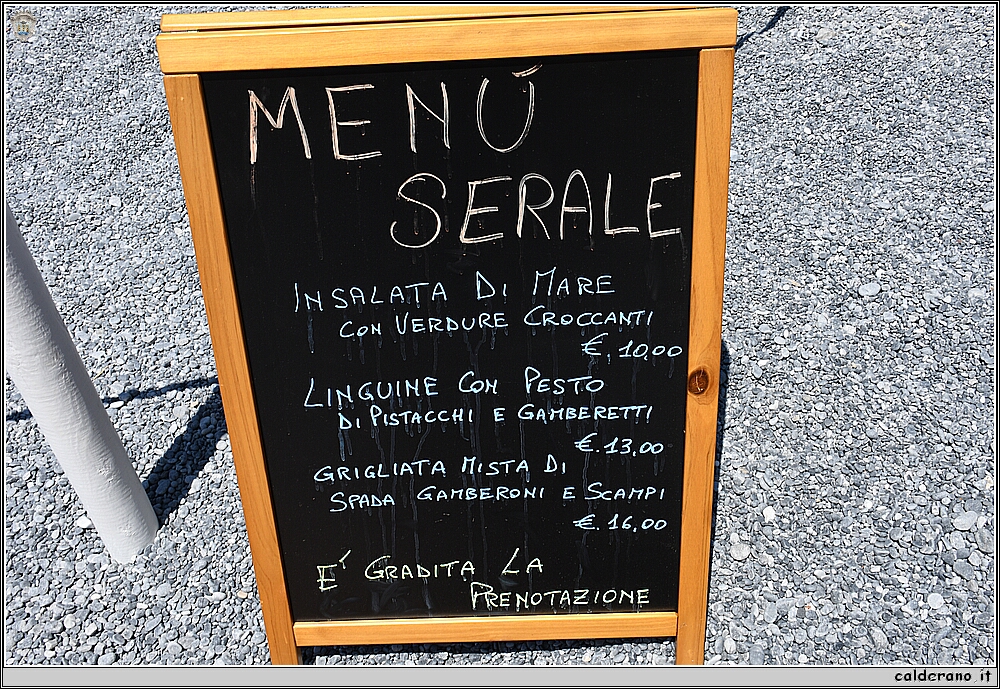 MENÚ
SERALE
INSALATA DI MARE
CON VERDURE CROCCANTI
€. 10,00
LINGUINE CON PESTO
DI PISTACCHI E GAMBERETTI
€. 13,00
GRIGLIATA MISTA DI
SPADA GAMBERONI E SCAMPI
€. 16,00
E' GRADITA LA
PRENOTAZIONE
calderano.it